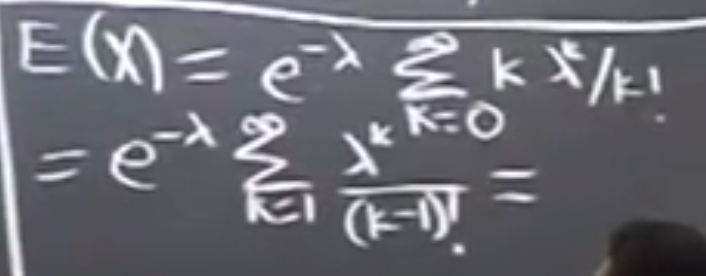 E(X) = e^{-λ} ∑_{k=0}^{∞} k λ^k/k!
= e^{-λ} ∑_{k=1}^{∞} \frac{λ^k}{(k-1)!} =